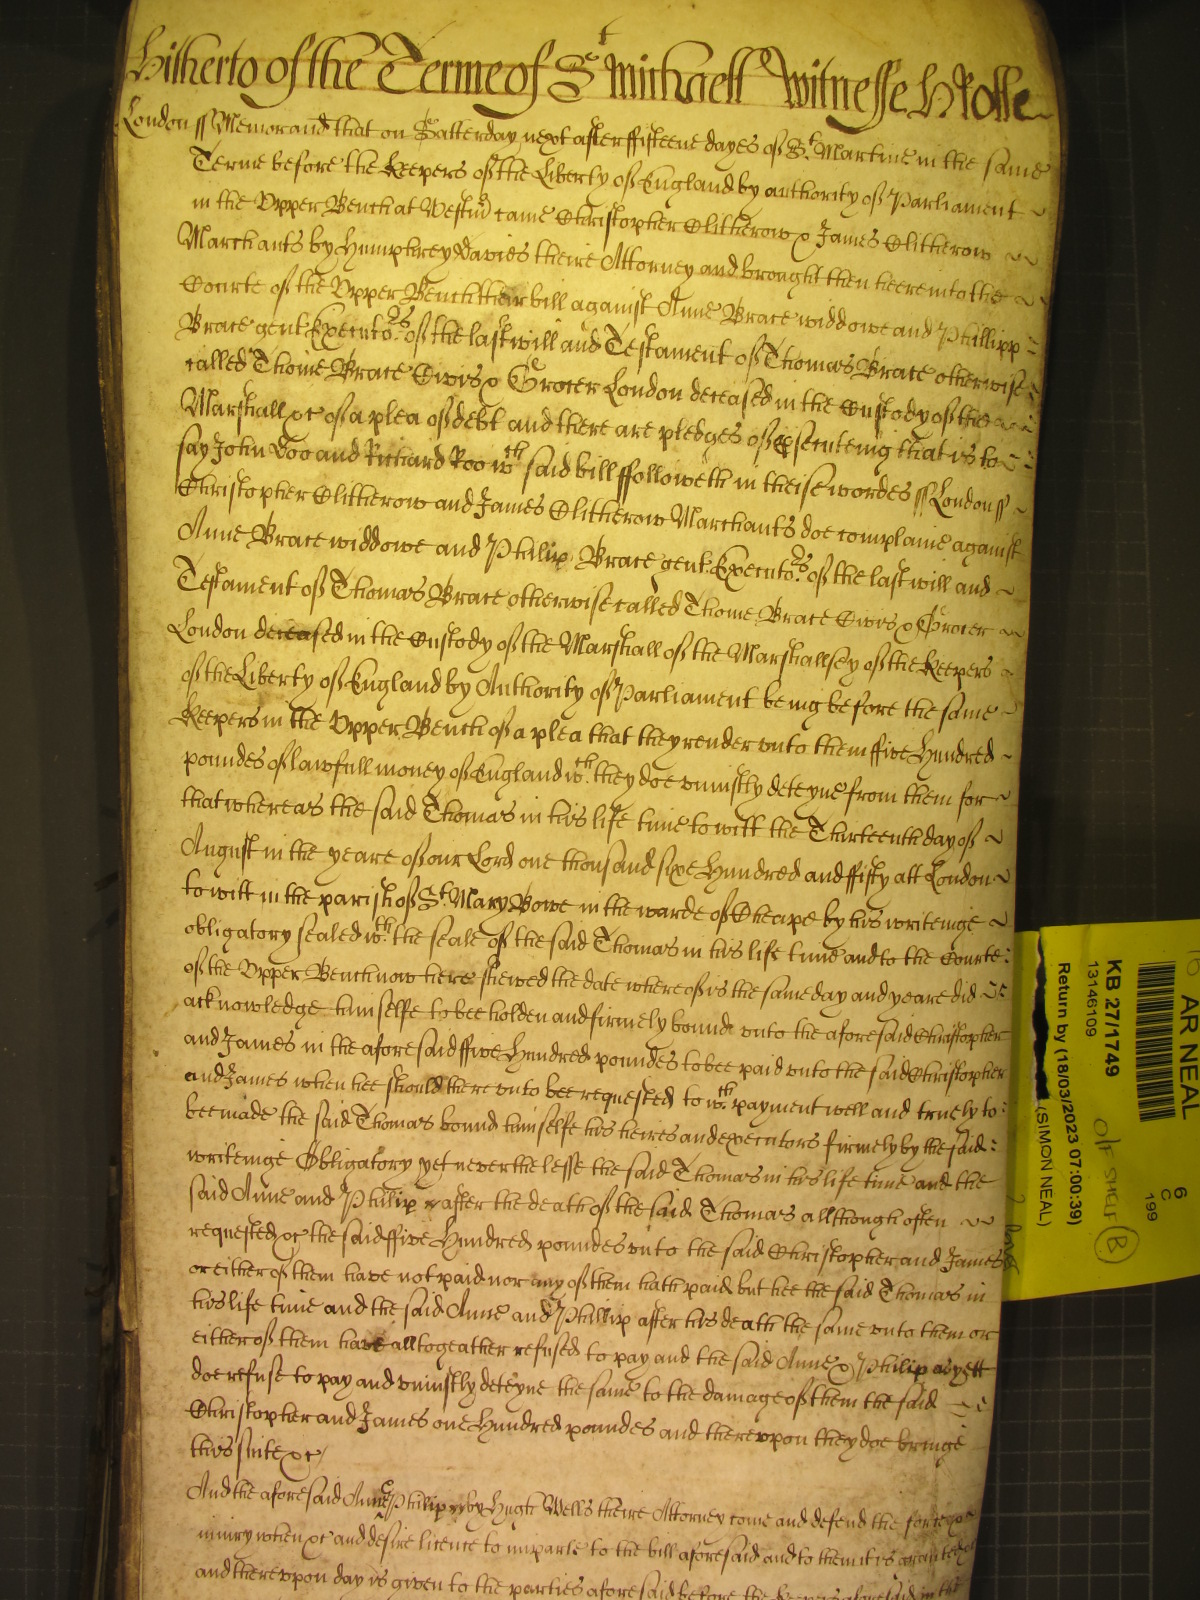 Hitherto of the Terme of St Michaell Witnesse H Rolle
London ss Memorand that on Satterday next after fifteene dayes of St. Martine in the same
Terme before the Keepers of the Liberty of England by authority of Parliament
in the Vpper Bench at Westm came Christopher Clitherow & James Clitherow
Marchants by Humphrey Davies theire Attorney and brought then heere into the
Courte of the Vpper Bench their bill against Anne Brace widdowe and Phillipp
Brace gent. Executors of the last will and Testament of Thomas Brace otherwise
called Thome Brace Civis & Grocer London deceased in the Custody of the
Marshall &c of a plea of debt and there are pledges of prosecuteing that is to
say John Doo and Richard Roo wth said bill ffolloweth in theise wordes ss London ss
Christopher Clitherow and James Clitherow Marchants doe complaine against
Anne Brace widdowe and Philip Brace gent. Executors of the last will and
Testament of Thomas Brace otherwise called Thome Brace Civis & Grocer
London deceased in the Custody of the Marshall of the Marshallsey of the Keepers
of the Liberty of England by Authority of Parliament being before the same
Keepers in the Vpper Bench of a plea that they render vnto them ffive Hundred
poundes of lawfull money of England wth. they doe vniustly deteyne from them for
that whereas the said Thomas in his life time to witt the Thirteenth day of
August in the yeare of our Lord one thousand sixe Hundred and ffifty att London
to witt in the parish of St. Mary Bowe in the warde of Cheape by his writeinge
obligatory sealed wth. the seale of the said Thomas in his life time and to the Courte
of the Vpper Bench now here shewed the date whereof is the same day and yeare did
acknowledge himselfe to bee holden and firmely bound vnto the aforesaid Christopher
and James in the aforesaid ffive Hundred poundes to bee paid vnto the said Christopher
and James when hee should there vnto bee requested to wth. payment well and truely to
bee made the said Thomas bound himselfe his heires and executors firmely by the said
writeinge Obligatory yet neverthelesse the said Thomas in his life time and the
said Anne and Philip after the death of the said Thomas allthough often
requested &c the said ffive Hundred poundes vnto the said Christopher and James
or either of them have not paid nor any of them hath paid but hee the said Thomas in
his life time and the said Anne and Phillip after his death the same vnto them or
either of them have alltogeather refused to pay and the said Anne & Philip as yett
doe refuse to pay and vniustly deteyne the same to the damage of them the said
Christopher and James one Hundred poundes and therevpon they doe bringe
this suite &c
And the aforesaid Anne Philip by Hugh Wells theire Attorney come and defend the force &c
iniury when &c and desire licence to imparle to the bill aforesaid and to them it is granted &c
and therevpon day is given to the parties aforesaid before the Keepers aforesaid in the
AR NEAL
6
C
199
KB 27/1749
13146109
O/F SHELF
B
Return by (18/03/2023 07:00:39)
(SIMON NEAL)